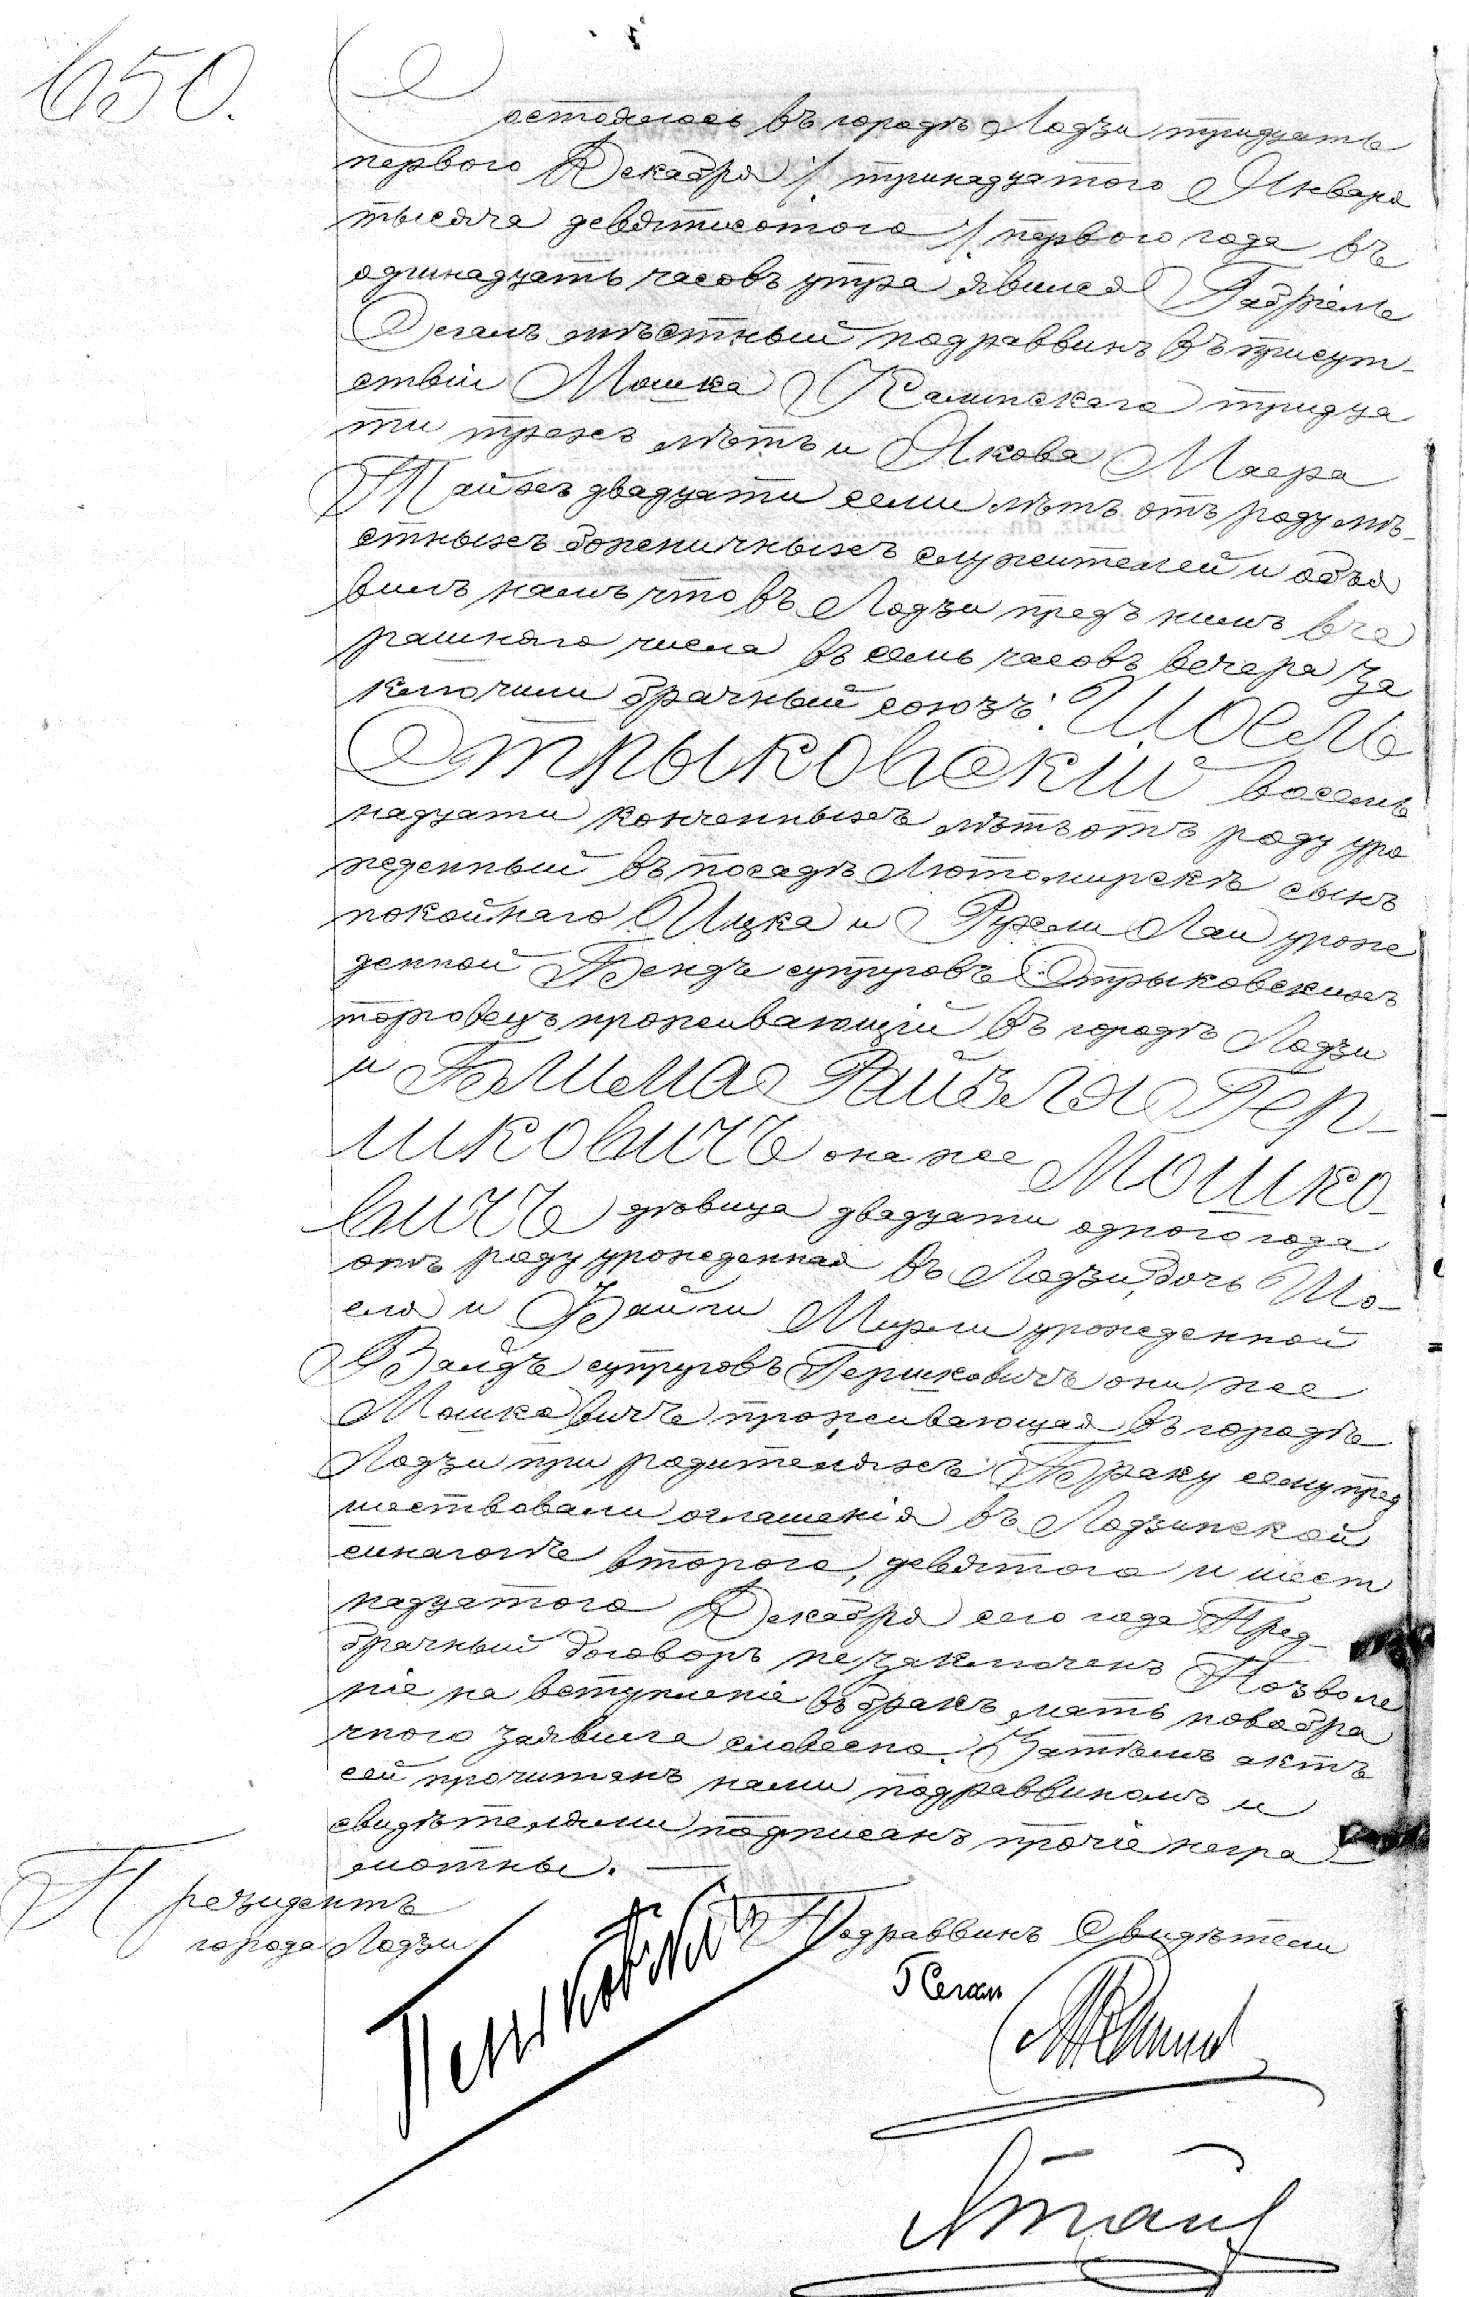 650.
Состоялось въ городѣ Лодзи тридцать
перваго Декабря /: тринадцатого Января
тысяча девятисотого /: первого года въ
одинадцать часовъ утра явился Габріель
Сегалъ мѣстный подраввинъ въ присут-
ствіи Мошка Калинскаго тридца
ти трехъ лѣтъ и Якова Маера
Тайхъ двадцати семи лѣтъ отъ роду мѣ-
стныхъ божничныхъ служителей и объя
вилъ намъ что въ Лодзи предъ нимъ вче
рашняго числа въ семь часовъ вечера за
ключили брачный союзъ: Шоель
Стрыковскій восем
надцати конченныхъ лѣтъ отъ роду уро
жденный въ посадѣ Лютомирскѣ сынъ
покойнаго Ицка и Рухли Леи урож
денной Бендъ супруговъ Стрыковскихъ
торговецъ проживающій въ городѣ Лодзи
и Блима Райзля Гер-
шковичъ она же Мошко-
вичъ дѣвица двадцати одного года
отъ роду урожденная въ Лодзи, дочь Шо-
еля и Файги Мирли урожденной
Валдъ супруговъ Гершковичъ они же
Мошковичъ проживающая въ городѣ
Лодзи при родителяхъ. Браку сему пред
шествовали оглашенія въ Лодзинской
синагогѣ второго, девятого и шест
надцатого Декабря сего года Пред-
брачный договоръ не заключенъ Позволе
ніе на вступленіе въ бракъ мать новобра
чного заявила словесно. Затѣмъ актъ
сей прочитанъ нами подраввиномъ и
свидѣтелями подписанъ прочіе негра-
мотны. —
Президентъ
города Лодзи
Пеньковскій
Подраввинъ Свидѣтели
Г Сегал
Я Тайх